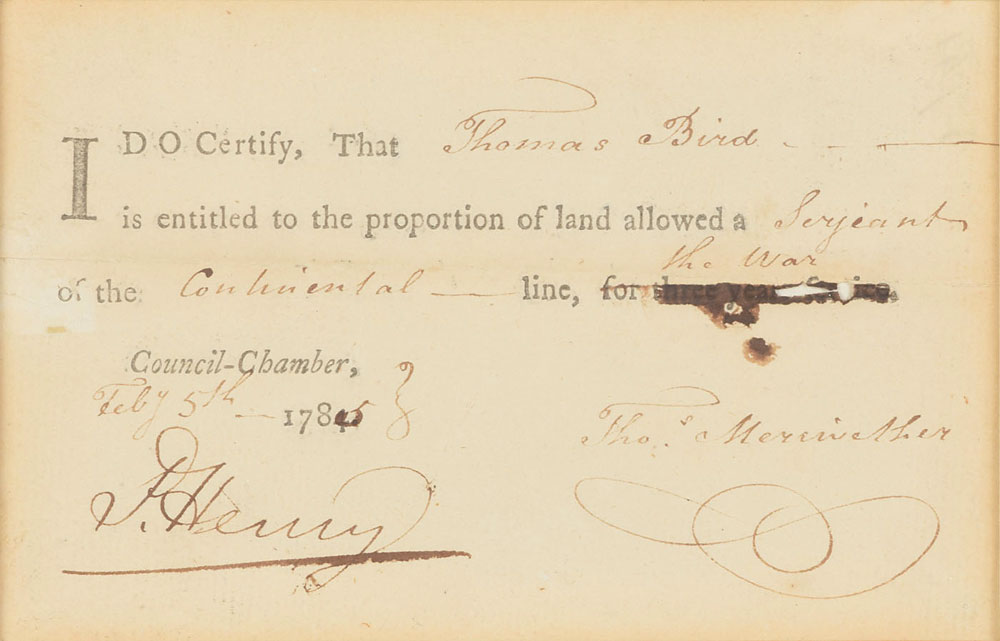 I DO Certify, That Thomas Bird
is entitled to the proportion of land allowed a Serjeant
the War
of the Continental line, for three years service.
Council-Chamber,
Feby 5th 1785
Thos. Meriwether
P. Henry